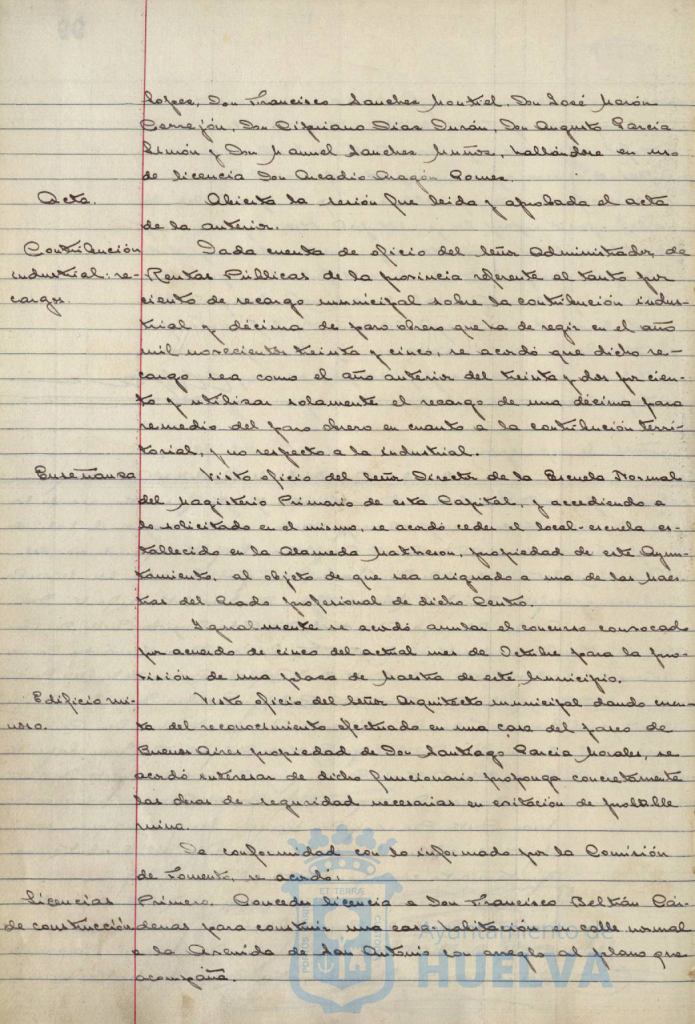 Lopez, Don Francisco Sanchez Montiel, Don José Marón
Cerrejón, Don Cipriano Dias Durán, Don Augusto Garcia
Simón y Don Manuel Sanchez Muñoz, hallándose en uso
de licencia Don Arcadio Aragón Gomez.
Acta. Abierta la sesión fue leida y aprobada el acta
de la anterior.
Contribución Dada cuenta de oficio del Señor Administrador de
industrial: re- Rentas Públicas de la provincia referente al tanto por
cargos. ciento de recargo municipal sobre la contribución indus-
trial y décima de paro obrero que ha de regir en el año
mil novecientos treinta y cinco, se acordó que dicho re-
cargo sea como el año anterior del treinta y dos por cien-
to y utilizar solamente el recargo de una décima para
remedio del paro obrero en cuanto a la contribución terri-
torial, y no respecto a la industrial.
Enseñanza Visto oficio del Señor Director de la Escuela Normal
del Magisterio Primario de esta Capital, y accediendo a
lo solicitado en el mismo, se acordó ceder el local-escuela es-
tablecido en la Alameda Matheson, propiedad de este Ayun-
tamiento, al objeto de que sea asignado a una de las Maes-
tras del Grado profesional de dicho Centro.
Igualmente se acordó anular el concurso convocado
por acuerdo de cinco del actual mes de Octubre para la pro-
visión de una plaza de Maestra de este Municipio.
Edificio rui- Visto oficio del Señor Arquitecto municipal dando cuen-
noso. ta del reconocimiento efectuado en una casa del paseo de
Buenos Aires propiedad de Don Santiago Garcia Morales, se
acordó interesar de dicho funcionario proponga concretamente
las obras de seguridad necesarias en evitación de probable
ruina.
De conformidad con lo informado por la Comisión
de Fomento, se acordó:
Licencias Primero. Conceder licencia a Don Francisco Beltrán Cár-
de construcción denas para construir una casa-habitación en calle normal
a la Avenida de San Antonio con arreglo al plano que
acompaña.
Ayuntamiento de
HUELVA